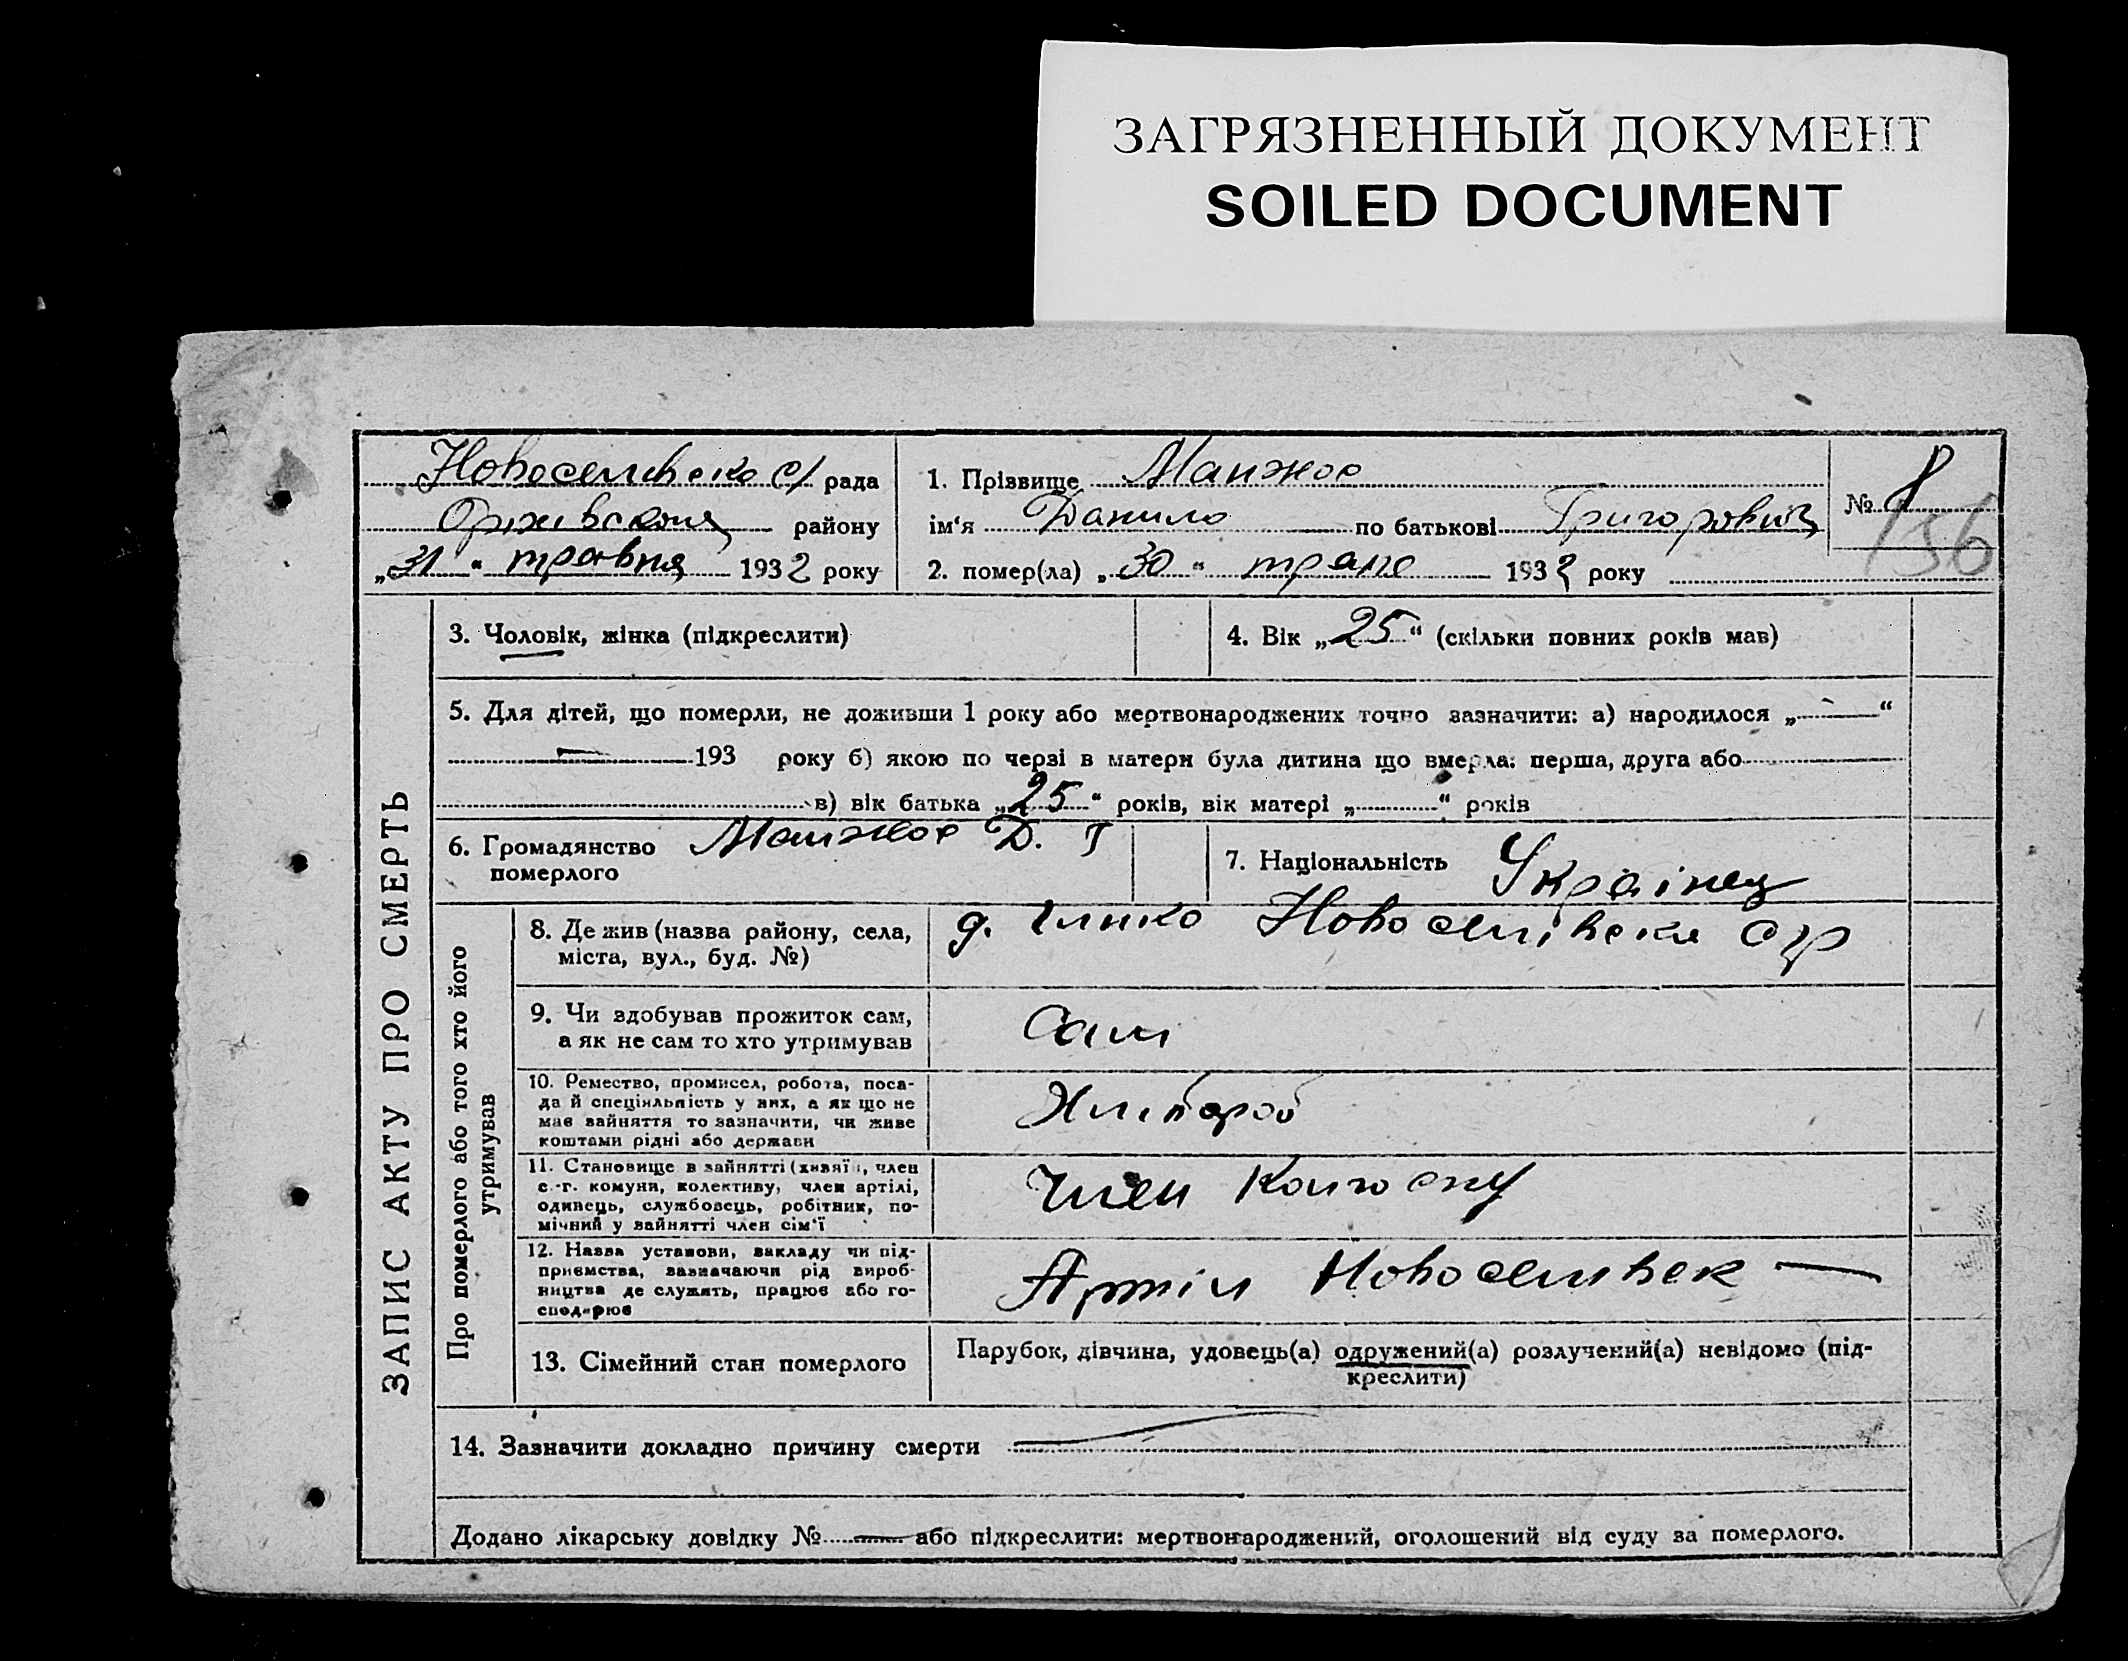 ЗАГРЯЗНЕННЫЙ ДОКУМЕНТ
SOILED DOCUMENT
Новоселівська с/ рада
району
„31“ травня 1932 року
1. Прізвище Манжос
ім'я Данило по батькові Григорович
2. помер(ла) „30“ травня 1932 року
№ 8
156
ЗАПИС АКТУ ПРО СМЕРТЬ
3. Чоловік, жінка (підкреслити)
4. Вік „25“ (скільки повних років мав)
5. Для дітей, що померли, не доживши 1 року або мертвонароджених точно зазначити: а) народилося „—“
— 193 року б) якою по черзі в матери була дитина що вмерла: перша, друга або
в) вік батька „25“ років, вік матері „ “ років
6. Громадянство Манжос Д. Г
померлого
7. Національність Українец
Про померлого або того хто його
утримував
8. Де жив (назва району, села,
міста, вул., буд. №)
Новоселівська с р
9. Чи здобував прожиток сам,
а як не сам то хто утримував
Сам
10. Ремество, промисел, робота, поса-
да й спеціяльність у них, а як що не
має зайняття то зазначити, чи живе
коштами рідні або держави
Хлібороб
11. Становище в зайнятті (хазяїн, член
с.-г. комуни, колективу, член артілі,
одинець, службовець, робітник, по-
мічний у зайнятті член сім'ї
Член Колгоспу
12. Назва установи, закладу чи під-
приємства, зазначаючи рід вироб-
ництва де служить, працює або го-
сподарює
Артіл Новоселівск —
13. Сімейний стан померлого
Парубок, дівчина, удовець(а) одружений(а) розлучений(а) невідомо (під-
креслити)
14. Зазначити докладно причину смерти —
Додано лікарську довідку № — або підкреслити: мертвонароджений, оголошений від суду за померлого.